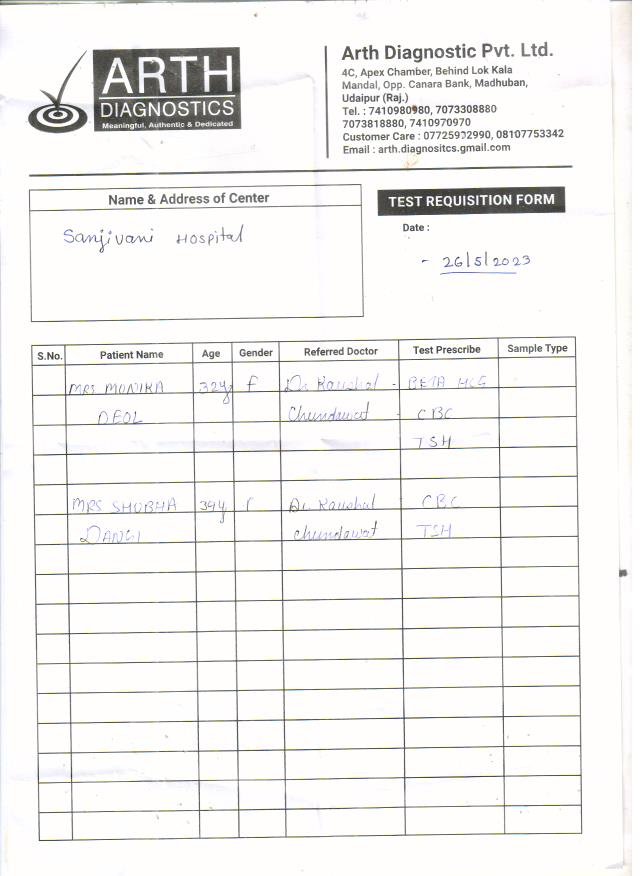 ARTH
DIAGNOSTICS
Meaningful, Authentic & Dedicated
Arth Diagnostic Pvt. Ltd.
4C, Apex Chamber, Behind Lok Kala
Mandal, Opp. Canara Bank, Madhuban,
Udaipur (Raj.)
Tel. : 7410980980, 7073308880
7073818880, 7410970970
Customer Care : 07725992990, 08107753342
Email : arth.diagnositcs.gmail.com
Name & Address of Center
Sanjivani Hospital
TEST REQUISITION FORM
Date :
- 26/5/2023
S.No. Patient Name Age Gender Referred Doctor Test Prescribe Sample Type
MRS MONIKA 32y F Dr Kaushal - BETA HCG
DEOL Chundawat - CBC
TSH
MRS SHOBHA 39y F Dr. Kaushal CBC
DANGI Chundawat TSH